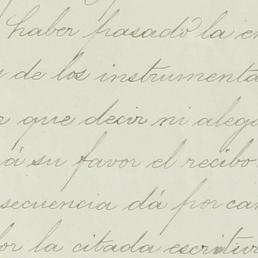 haber pasado la en
de los instrumenta
que decir ni alega
á su favor el recibo
secuencia dá por can
por la citada escritur